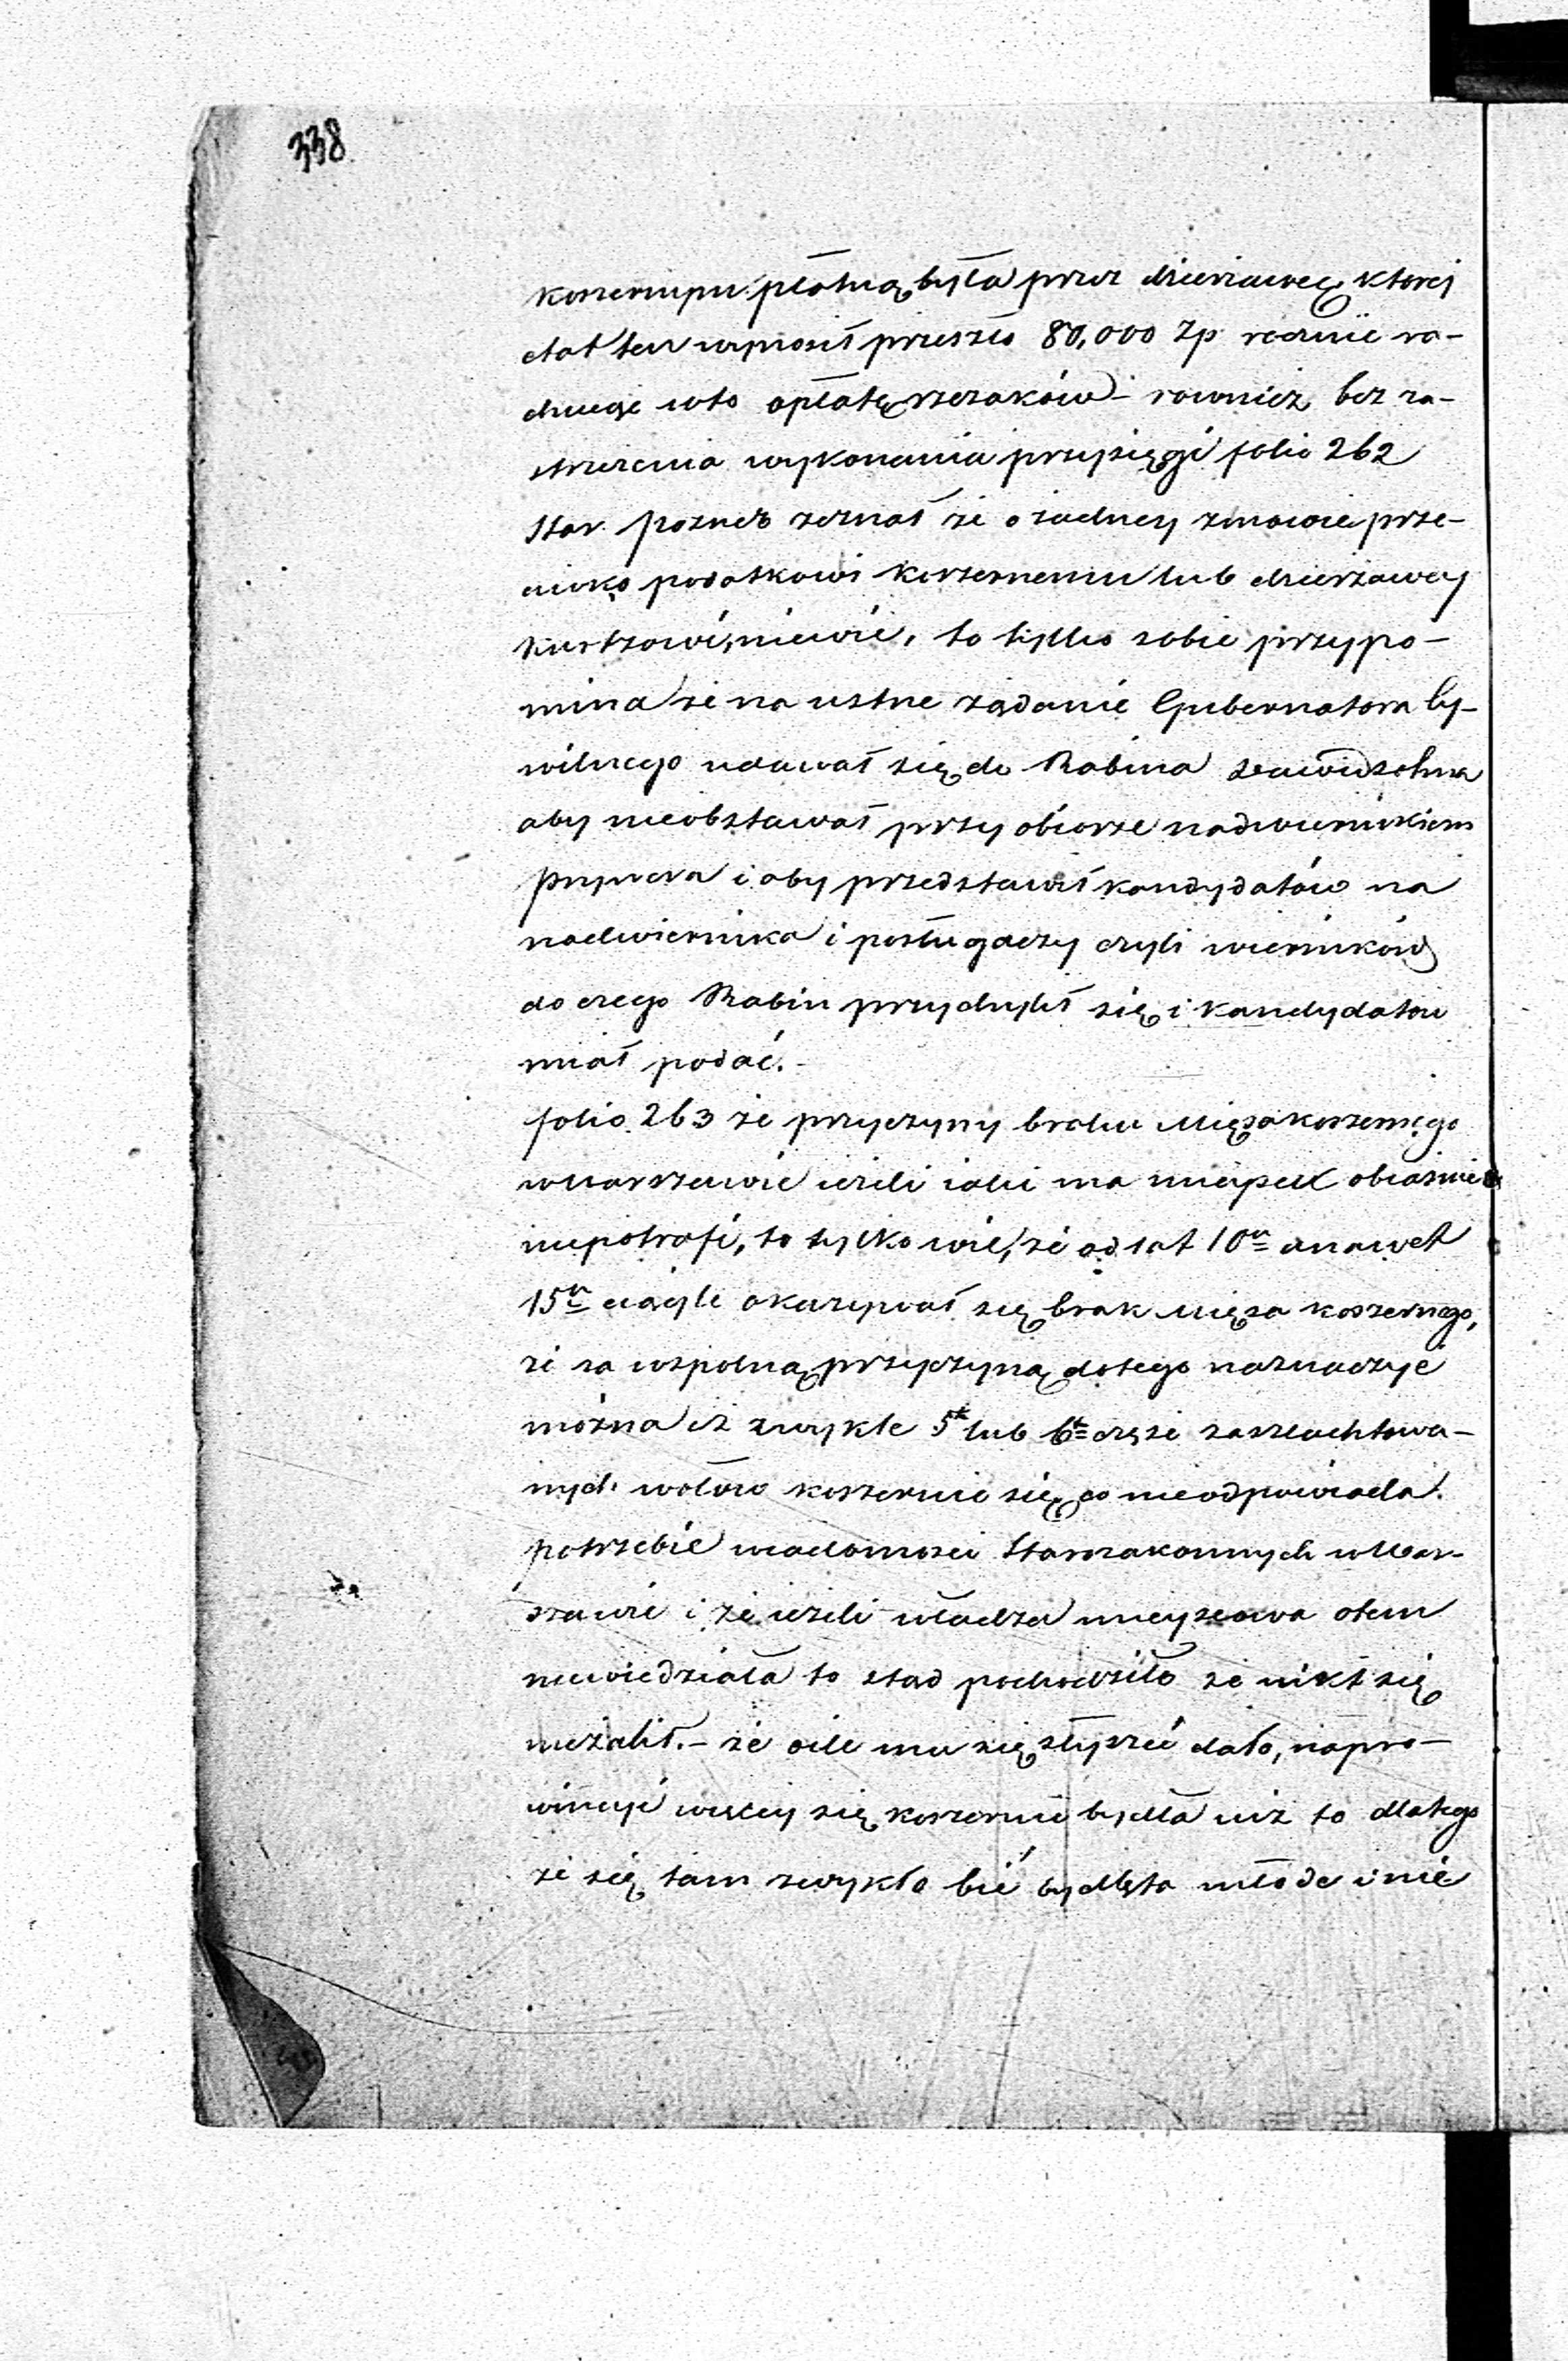 338
koszernym płatną była przez dzierżawcę, ktorej
etat ten wynosił przeszło 80,000 Zp rocznie ra-
chując w to opłatę rzezaków – rownież bez za-
strzeżenia wykonania przysięgi folio 262
Star. Pozner zeznał że o żadney zmowie prze-
ciwko podatkowi koszernemu lub dzierżawcy
niewie, to tylko sobie przypo-
mina że na ustne żądanie Gubernatora Cy-
wilnego udawał się do Rabina
aby nieobstawał przy obiorze nadwiernikiem
i aby przedstawił kandydatów na
nadwiernika i posługaczy czyli wierników
do czego Rabin przychylił się i kandydatow
miał podać. –
folio 263 że przyczyny braku Mięsa koszernego
w Warszawie ieżeli iaki ma mieysce obiasnić
niepotrafi, to tylko wie, że od lat 10u a nawet
15u ciągle okazywał się brak mięsa koszernego,
że za wspolną przyczyną do tego naznaczyć
można iż zwykle 5ta lub 6ta częsć zaszlachtowa-
nych wołow koszernie się, co nieodpowiada
potrzebie wiadomości Starozakonnych w War-
szawie i że ieżeli władza mieyscowa o tem
niewiedziała to stąd pochodziło że nikt się
nieżalił. – że o ile mu się słyszeć dało, na pro-
wincyi więcey się koszernie bydła niż to dlatego
że się tam zwykło bić bydlęta młode i nie